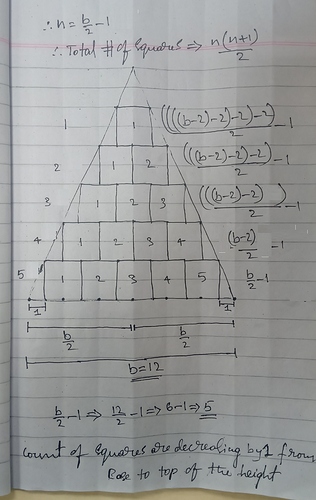 ∴ n = b/2 - 1
∴ Total # of squares ⇒ n(n+1)/2
1 1 ((((b-2)-2)-2)-2)/2 - 1
2 1 2 (((b-2)-2)-2)/2 - 1
3 1 2 3 (((b-2)-2))/2 - 1
4 1 2 3 4 (b-2)/2 - 1
5 1 2 3 4 5 b/2 - 1
1 1
b/2 b/2
b = 12
b/2 - 1 ⇒ 12/2 - 1 ⇒ 6 - 1 ⇒ 5
count of squares are decreasing by 1 from
Base to top of the height